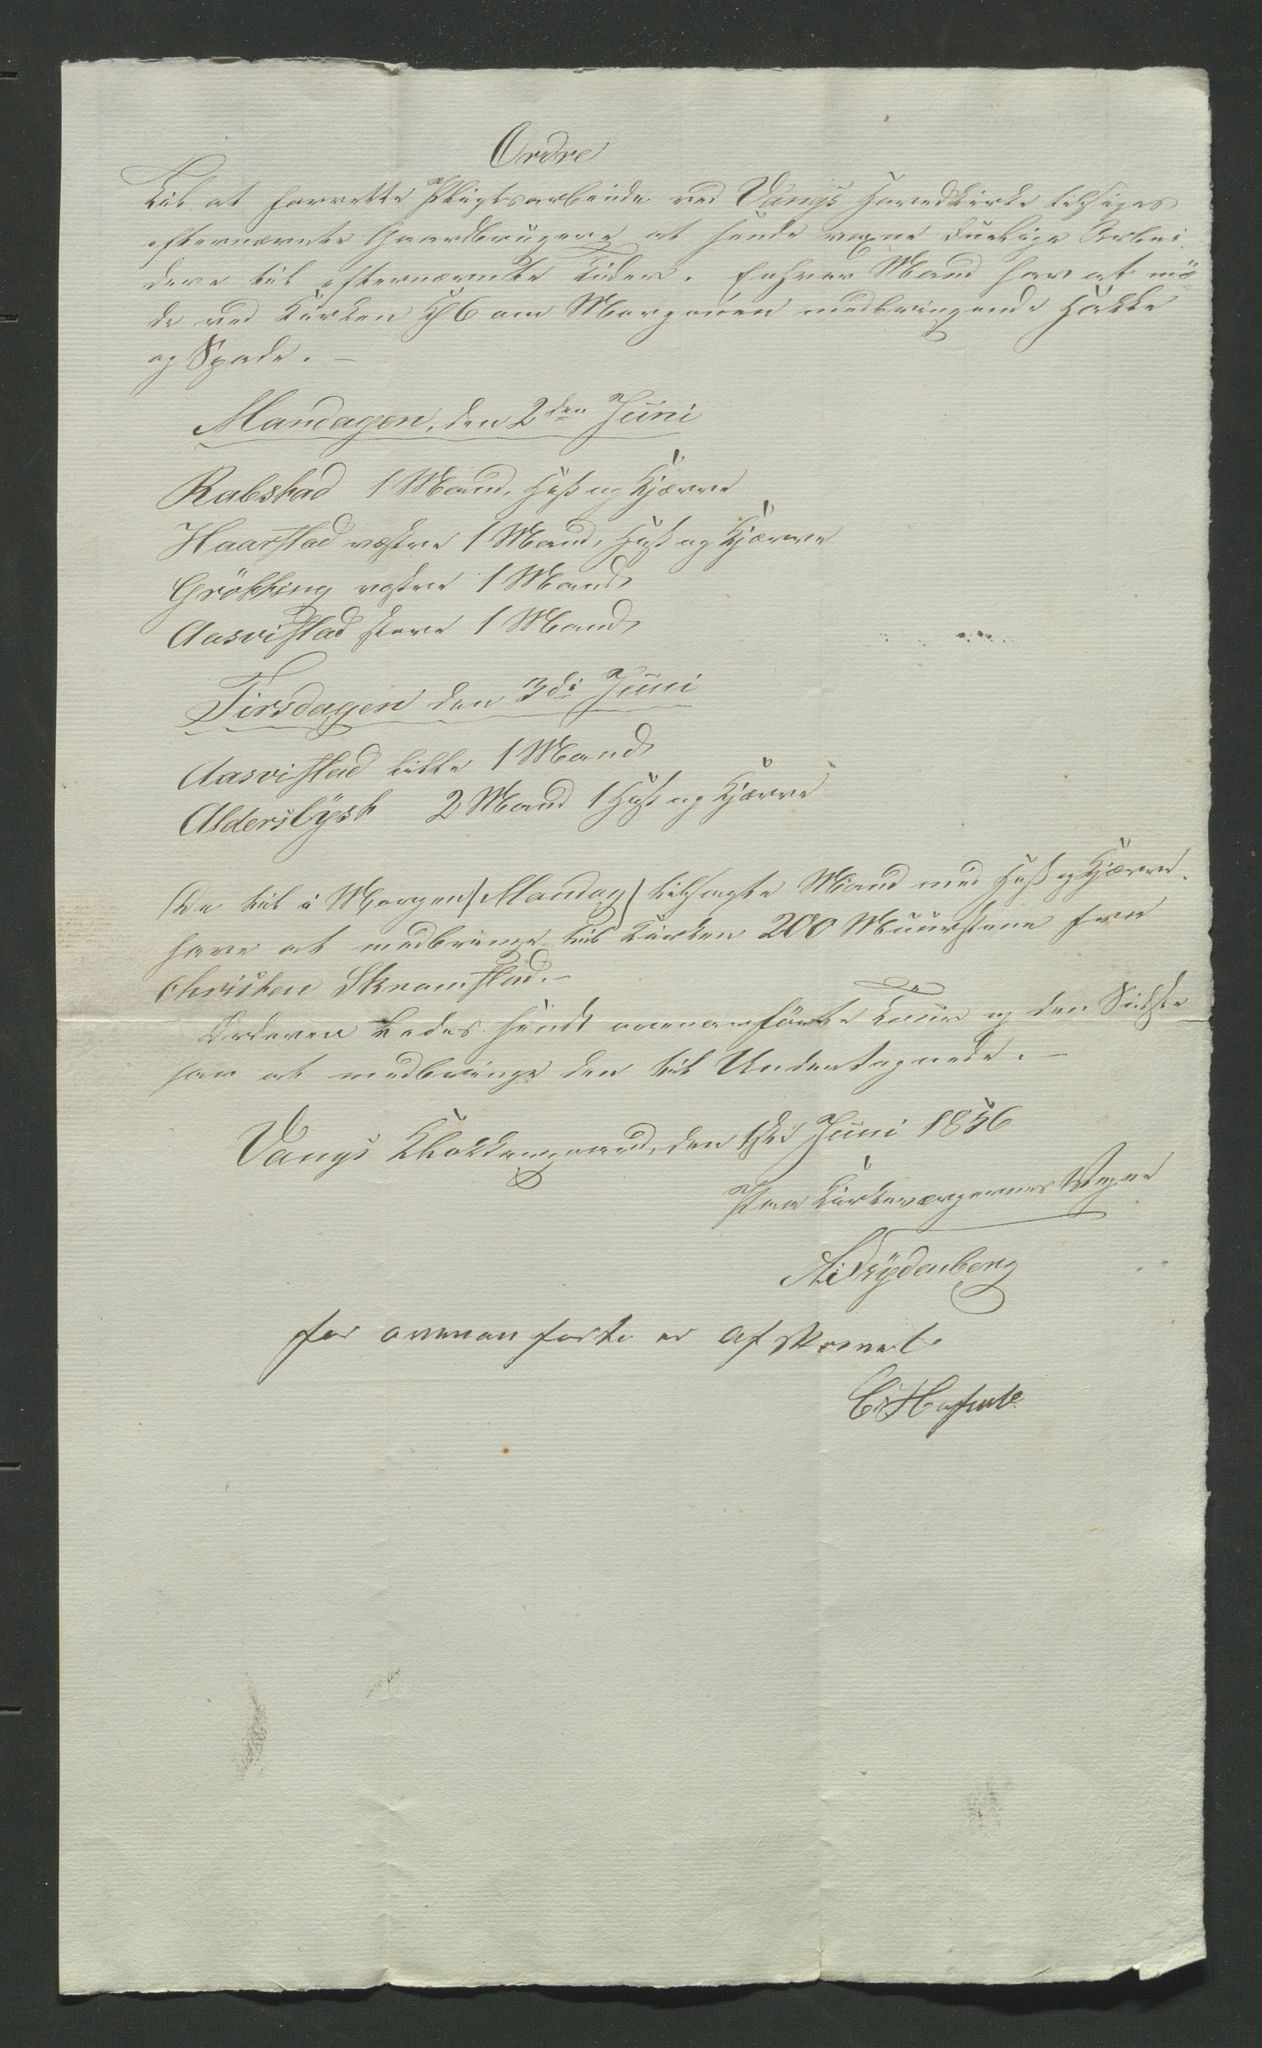 Ordre
Til at forrette Pligtsarbeide ved Vangs Hovedkirke tilsiges
efternævnte Gaardbrugere at sende voxne duelige Arbei-
dere til efternævnte Tider. Enhver Mand har at mö-
de ved Kirken Kl 6 om Morgenen medbringende Hakke
og Spade. —
Mandagen, den 2den Juni
Rabstad 1 Mand, Hest og Kjærre
Haarstad vestre 1 Mand, Hest og Kjærre
Gröhting vestre 1 Mand,
Aasvistad store 1 Mand,
Tirsdagen den 3di Juni
Aasvistad lille 1 Mand,
Alderslyst 2 Mand 1 Hest og Kjærre
De til i Morgen (Mandag) tilsagte Mænd med Hest og Kjærre
have at medbringe til Kirken 200 Muursteene fra
Christen Skramstad. —
Orderen bedes sendt ovenanförte Tour og den Sidste
har at medbringe den til Undertegnede. —
Vangs Klokkergaard, den 1ste Juni 1856
Paa Kirkeværgernes Vegne
A. Frydenberg
for ovenanforte er Afskrevet